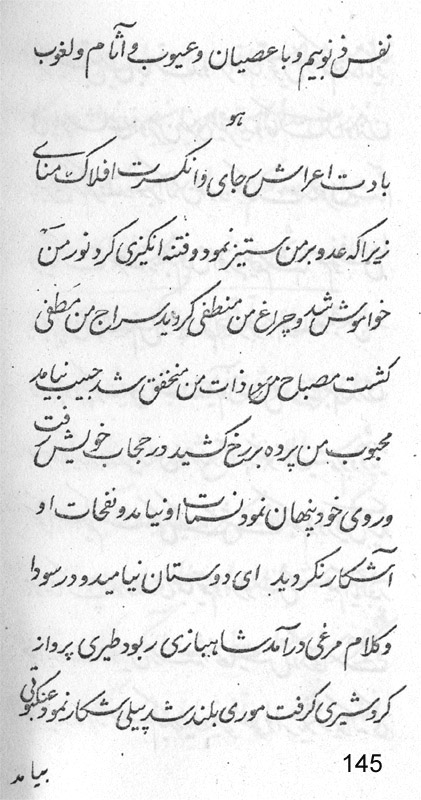 نفس ذنوبیم و با عصیان و عیوب و آثام و لغوب
هو
بادت اعراش بر جای و انکرت افلاک منای
زیراکه عدو بر من ستیز نمود و فتنه انکیزی کرد نور من
خواموش شد و چراغ من منطفی کردید سراج من مطفی
کشت مصباح من ذات من منخفق شد حبیب نیامد
محبوب من پرده بر رخ کشید در حجاب خویش رفت
و روی خود پنهان نمود نسمات او نیامد و نفحات او
آشکار نکردید ای دوستان نیامید و در سودا
و کلام مرغی در آمد شاهبازی ربود طیری پرواز
کرد شیری کرفت موری بلند شد پیلی شکار نمود عنکبوتی
بیامد
145